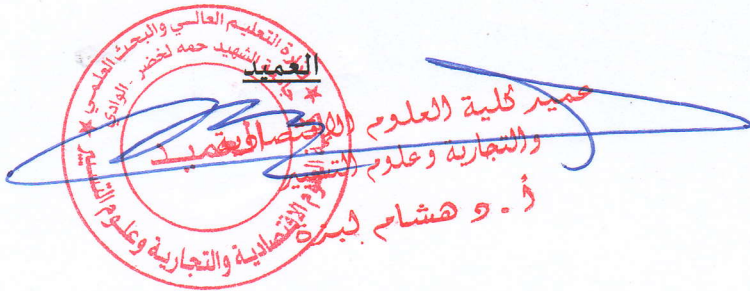 العميد
وزارة التعليم العالي والبحث العلمي
جامعة الشهيد حمه لخضر - الوادي
كلية العلوم الاقتصادية والتجارية وعلوم التسيير
العميد
عميد كلية العلوم الاقتصادية
والتجارية وعلوم التسيير
أ. د هشام لبزة